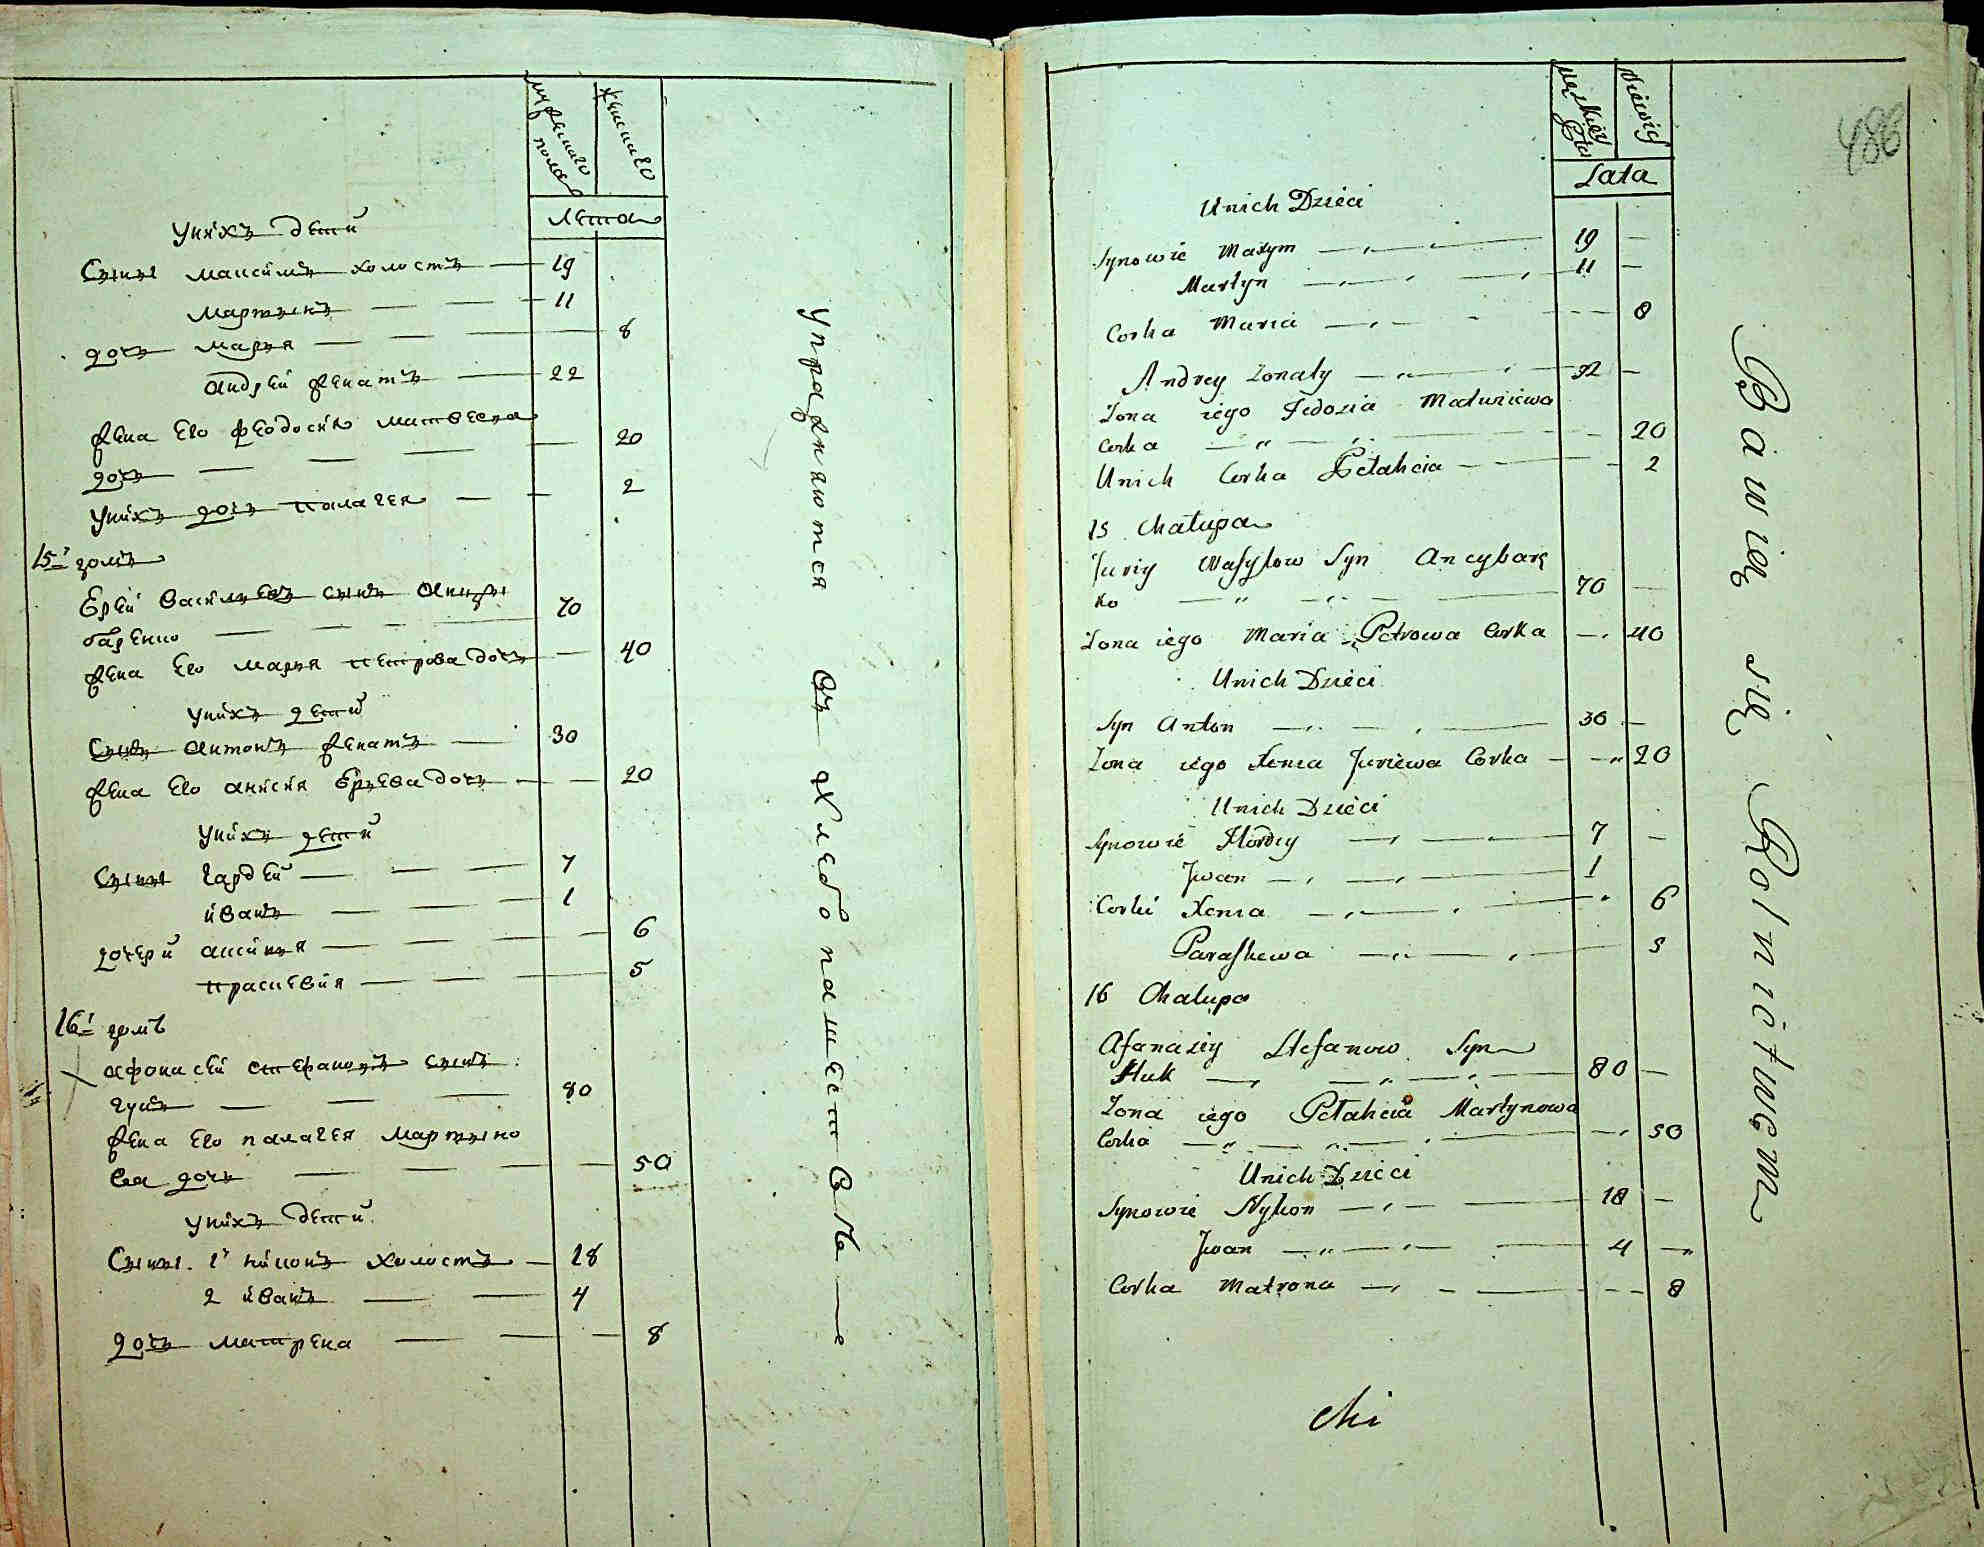 мужескаго
пола
женскаго
лета
у них детей
Сыны максимъ холостъ 19
мартынъ 11
дочь марья 8
андрей женатъ 22
жена его феодосия матвеева
дочь 20
у них дочь палагея 2
15й домъ
Ерей Василъевъ сынъ анцы
баренко 70
жена его марья петрова дочь 40
у них детей
Сынъ антонъ женатъ 30
жена его анисия Ерьева дочь 20
у них детей
Сыны гардей 7
иванъ 1
дочери аксинья 6
прасковия 5
16й домъ
афонасей стефановъ сынъ
гукъ 80
жена его палагея мартыно
ва дочь 50
у них детей
Сыны. 1й никонъ холостъ 18
2 иванъ 4
дочь матрена 8
упражняются въ хлебопашестве
486
męskiey
Płci
Lata
Unich Dzieci
Synowie Maxym 19
Martyn 11
Corka Maria 8
Andrey Zonaty 22
Zona iego Fedosia Matwiiewa
Corka 20
Unich Corka Pelaheia 2
15 Chałupa
Juriy Wasylow Syn Ancybaręko 70
Zona iego Maria Petrowa Corka 40
Unich Dzieci
Syn Anton 30
Zona iego Xenia Juriewa Corka 20
Unich Dzieci
Synowie Hordey 7
Jwan 1
Corki Xenia 6
Paraskewa 5
16 Chałupa
Afanasiy Stefanow Syn
Huk 80
Zona iego Pelaheia Martynowa
Corka 50
Unich Dzieci
Synowie Nykon 18
Jwan 4
Corka Matrona 8
Bawią się Rolnictwem
chi